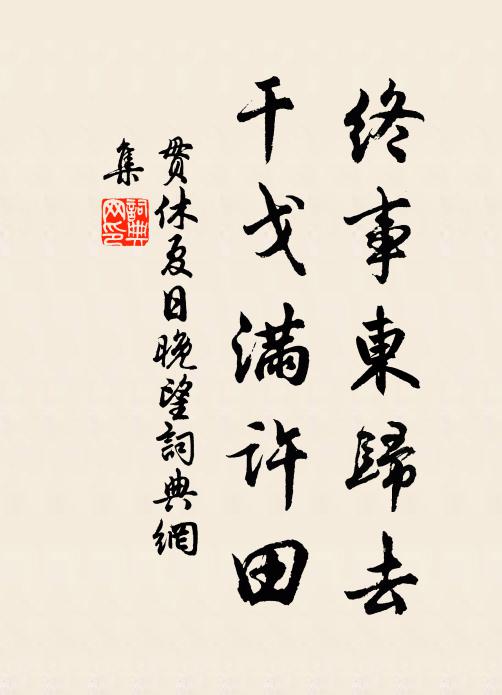 終事東歸去
干戈滿許田
貫休夏日晚望詞典網
集
詞典網印